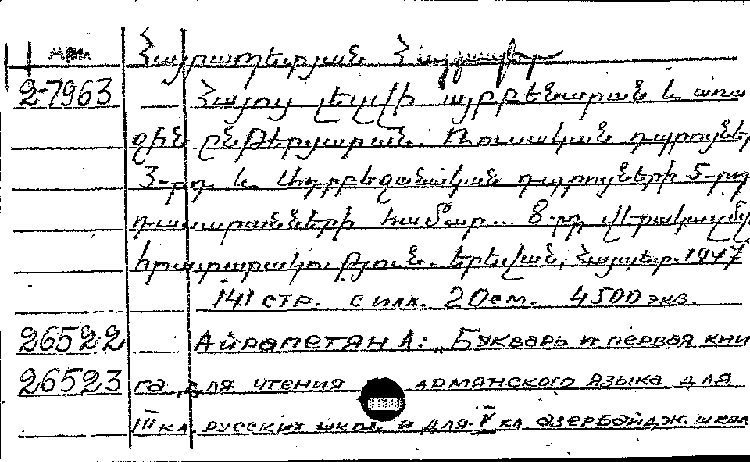 Հայրապետյան Հայկասեր
2-7963 Հայոց լեզվի այբբենարան և առա
ջին ընթերցարան. Ռուսական դպրոցների
3-րդ և Ադրբեջանական դպրոցների 5-րդ
դասարանների համար.. 8-րդ վերամշակ
հրատարակություն. Երևան, Հայպետ. 1947
141 стр. с илл. 20см. 4500 экз.
26522 Айрапетян А: Букварь и первая кни
26523 га для чтения армянского языка для
III кл русских школ и для V кл азербайдж. школ